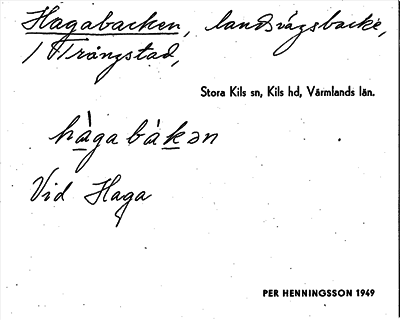 Hagabacken, landsvägsbacke,
i Trångstad,
Stora Kils sn, Kils hd, Värmlands län.
hàgabàkən
Vid Haga
PER HENNINGSSON 1949